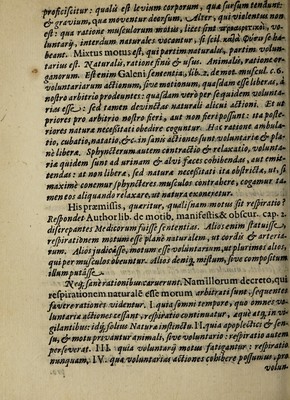 proficiscitur: qualis est levium corporum, quæ sursum tendunt:
& gravium, quæ moventur deorsum. Alter, qui violentus non
est: qua ratione musculorum motus, licet sint voluntarij, interdum naturales vocantur, si scil. habeant. Mixtus motus est, qui partim naturalis, partim voluntarius est. Naturalis, ratione finis & usus. Animalis, ratione organorum. Est enim Galeni sententia, lib. 2. de mot. muscul. c. 6.
voluntariarum actionum, sive motionum, quasdam esse liberas, à
nostro arbitrio prodeuntes: quasdam verò per sequidem voluntarias esse: sed tamen devinctas naturali alicui actioni. Et ut
priores pro arbitrio nostro fieri, aut non fieri possunt: ita posteriores naturæ necessitati obedire coguntur. Hac ratione ambulatio, cubatio, natatio, &c. in sanis actiones sunt voluntariæ & planè liberæ. Sphyncterum autem contractio & relaxatio, voluntaria quidem sunt ad urinam & alvi fæces cohibendas, aut emittendas: at non libera, sed naturæ necessitati ita obstricta, ut, si
maximè conemur sphyncteres musculos contrahere, cogamur tamen eos aliquando relaxare, ut naturæ exoneretur.
His præmissis, quæritur, qualisnam motus sit respiratio?
Respondet Author lib. de motib. manifestis & obscur. cap. 2.
discrepantes Medicorum fuisse sententias. Alios enim statuisse,
respirationem motum esse planè naturalem, ut cordis & arteriarum. Alios judicasse, motum esse voluntarium, ut plurimos alios,
qui per musculos obeuntur. Alios deniq, mistum, sive compositum
illum putasse.
Neq; sanè rationibus caruerunt. Nam illorum decreto, qui
respirationem naturalē esse motum arbitrati sunt, sequentes
favere rationes videntur. I. quia somni tempore, quo omnes voluntaria actiones cessant, respiratio continuatur, æquè atq; in vigilantibus: idq; solius Naturæ instinctu. II. quia apoplectici & sensu, & motu privantur animali, sive voluntario: respiratio autem
perseverat. III. quia voluntarij motus fatigant: respiratio
nunquam. IV. quia voluntarias actiones cohibere possumus, pro
volun-